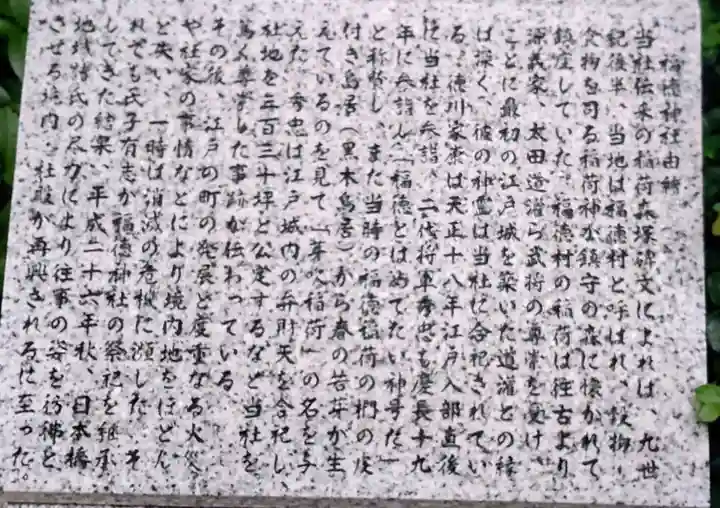 福徳神社由緒
当社伝来の稲荷森塚碑文によれば、九世
紀後半、当地は福徳村と呼ばれ、穀物・
食物を司る稲荷神が鎮守の森に懐かれて
鎮座していた。福徳村の稲荷は往古より
源義家、太田道灌ら武将の尊崇を受け、
ことに最初の江戸城を築いた道灌との縁
は深く、彼の神霊は当社に合祀されてい
る。徳川家康は天正十八年江戸入部直後
に当社を参詣、二代将軍秀忠も慶長十九
年に参詣し、「福徳とはめでたい神号だ」
と称賛し、また当時の福徳稲荷の椚の皮
付き鳥居(黒木鳥居)から春の若芽が生
えているのを見て「芽吹稲荷」の名を与
えた。秀忠は江戸城内の弁財天を合祀し、
社地を三百三十坪と公定するなど当社を
篤く尊崇した事跡が伝わっている。
その後、江戸の町の発展と度重なる火災
や社家の事情などにより境内地をほとん
ど失い、一時は消滅の危機に瀕した。そ
れでも氏子有志が福徳神社の祭祀を継承
してきた結果、平成二十六年秋、日本橋
地域諸氏の尽力により往事の姿を彷彿と
させる境内・社殿が再興されるに至った。